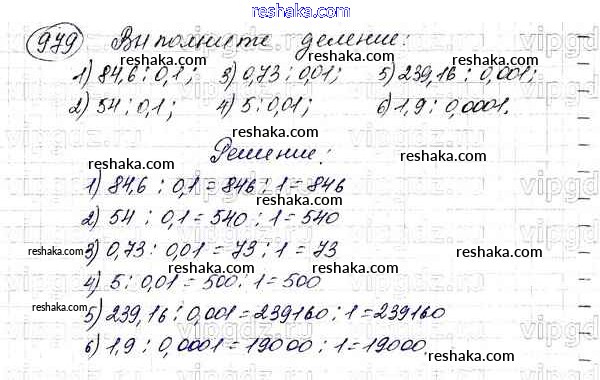 reshaka.com
979 Выполните деление:
1) 84,6 : 0,1; 3) 0,73 : 0,01; 5) 239,16 : 0,001;
reshaka.com reshaka.com reshaka.com
2) 54 : 0,1; 4) 5 : 0,01; 6) 1,9 : 0,0001.
reshaka.com
Решение:
reshaka.com reshaka.com
1) 84,6 : 0,1 = 846 : 1 = 846
reshaka.com
2) 54 : 0,1 = 540 : 1 = 540
reshaka.com reshaka.com reshaka.com
3) 0,73 : 0,01 = 73 : 1 = 73
reshaka.com reshaka.com
4) 5 : 0,01 = 500 : 1 = 500
reshaka.com reshaka.com reshaka.com
5) 239,16 : 0,001 = 239160 : 1 = 239160
reshaka.com reshaka.com
6) 1,9 : 0,0001 = 19000 : 1 = 19000
reshaka.com reshaka.com